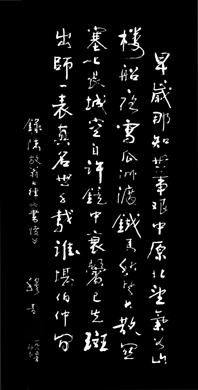 早歲那知世事艰中原北望氣如山
楼船夜雪瓜洲渡鐵馬秋風大散関
塞上長城空自許鏡中衰鬢已先斑
出師一表真名世千載誰堪伯仲間
錄陸放翁七律《書憤》